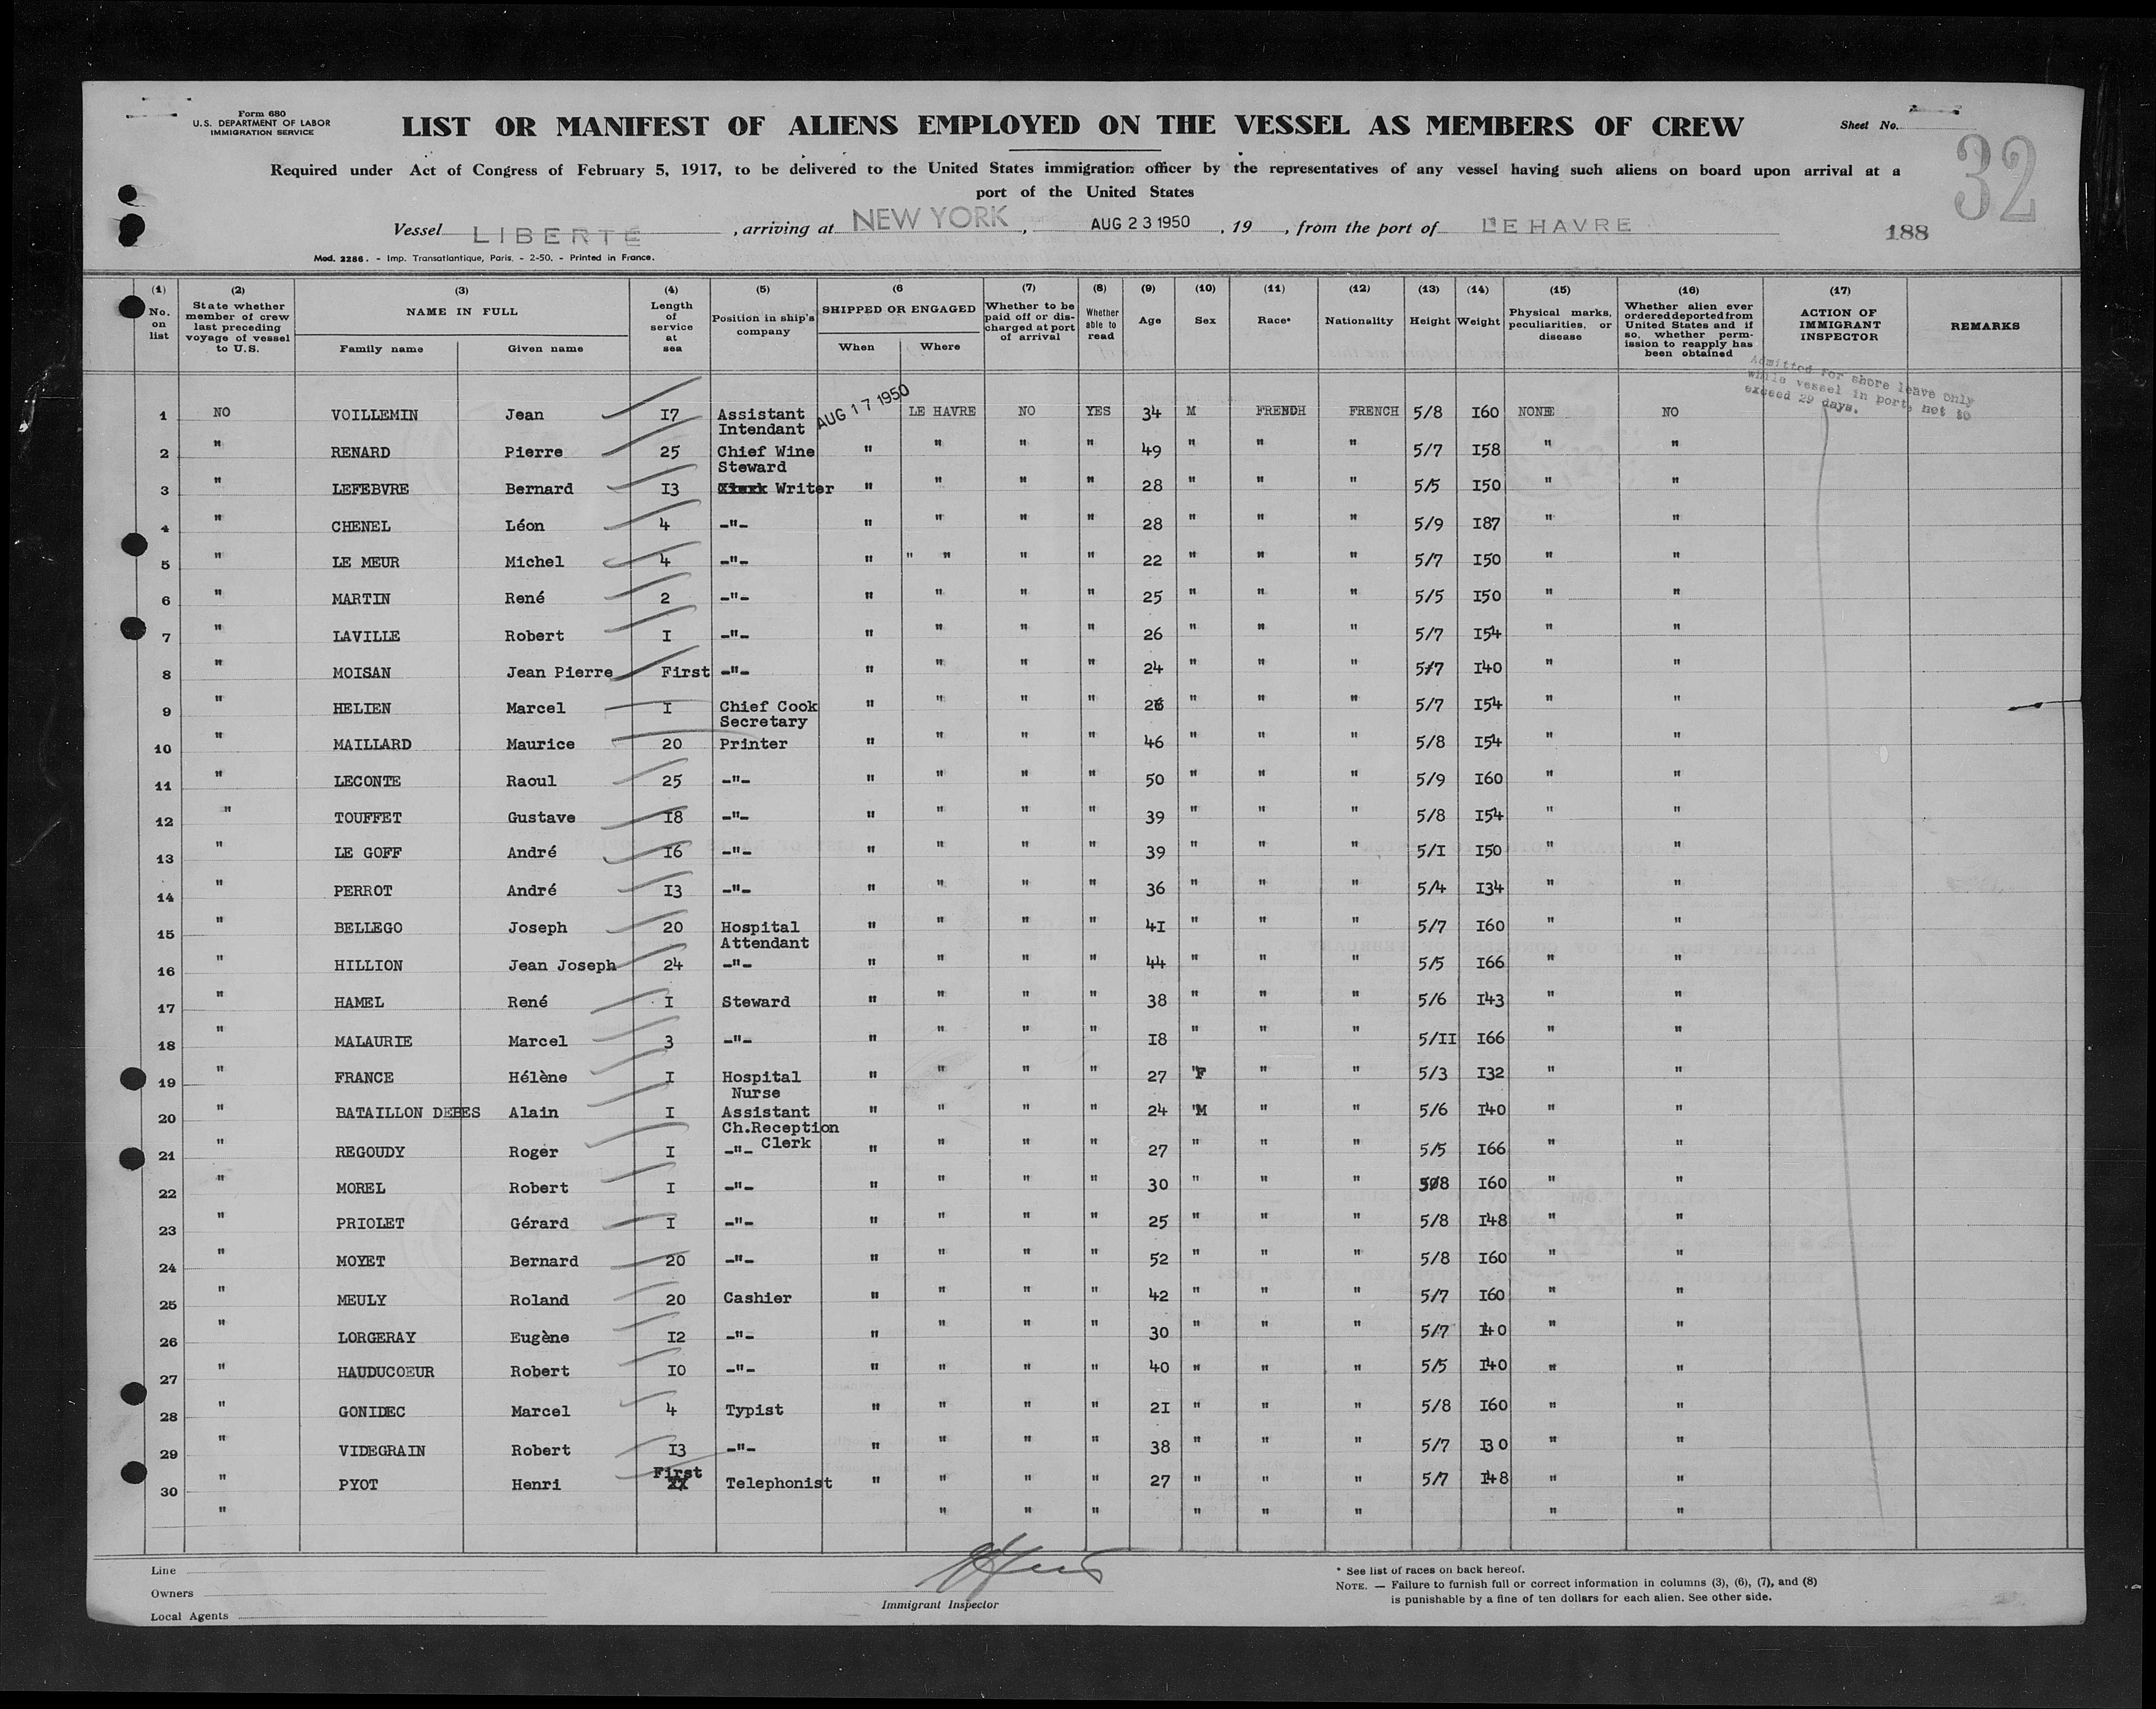 Form 680
U.S. DEPARTMENT OF LABOR
IMMIGRATION SERVICE
LIST OR MANIFEST OF ALIENS EMPLOYED ON THE VESSEL AS MEMBERS OF CREW
Sheet No.
32
Required under Act of Congress of February 5, 1917, to be delivered to the United States immigration officer by the representatives of any vessel having such aliens on board upon arrival at a
port of the United States
Vessel LIBERTÉ , arriving at NEW YORK , AUG 23 1950 , 19 , from the port of LE HAVRE 188
Mod. 2286. - Imp. Transatlantique, Paris. - 2-50. - Printed in France.
(1) No. on list (2) State whether member of crew last preceding voyage of vessel to U.S. (3) NAME IN FULL Family name Given name (4) Length of service at sea (5) Position in ship's company (6 SHIPPED OR ENGAGED When Where (7) Whether to be paid off or discharged at port of arrival (8) Whether able to read (9) Age (10) Sex (11) Race* (12) Nationality (13) Height (14) Weight (15) Physical marks, peculiarities, or disease (16) Whether alien ever ordered deported from United States and if so, whether permission to reapply has been obtained (17) ACTION OF IMMIGRANT INSPECTOR REMARKS
Admitted for shore leave only
while vessel in port, not to
exceed 29 days.
1 NO VOILLEMIN Jean 17 Assistant Intendant AUG 17 1950 LE HAVRE NO YES 34 M FRENCH FRENCH 5/8 I60 NONE NO
2 " RENARD Pierre 25 Chief Wine Steward " " " " 49 " " " 5/7 I58 " "
3 " LEFEBVRE Bernard I3 Writer " " " " 28 " " " 5/5 I50 " "
4 " CHENEL Léon 4 -"- " " " " 28 " " " 5/9 I87 " "
5 " LE MEUR Michel 4 -"- " " " " " 22 " " " 5/7 I50 " "
6 " MARTIN René 2 -"- " " " " 25 " " " 5/5 I50 " "
7 " LAVILLE Robert I -"- " " " " 26 " " " 5/7 I54 " "
8 " MOISAN Jean Pierre First -"- " " " " 24 " " " 5/7 I40 " "
9 " HELIEN Marcel I Chief Cook Secretary " " " " " " " 5/7 I54 " "
10 " MAILLARD Maurice 20 Printer " " " " 46 " " " 5/8 I54 " "
11 " LECONTE Raoul 25 -"- " " " " 50 " " " 5/9 I60 " "
12 " TOUFFET Gustave I8 -"- " " " " 39 " " " 5/8 I54 " "
13 " LE GOFF André I6 -"- " " " " 39 " " " 5/I I50 " "
14 " PERROT André I3 -"- " " " " 36 " " " 5/4 I34 " "
15 " BELLEGO Joseph 20 Hospital Attendant " " " " 4I " " " 5/7 I60 " "
16 " HILLION Jean Joseph 24 -"- " " " " 44 " " " 5/5 I66 " "
17 " HAMEL René I Steward " " " " 38 " " " 5/6 I43 " "
18 " MALAURIE Marcel 3 -"- " " " " I8 " " " 5/II I66 " "
19 " FRANCE Hélène I Hospital Nurse " " " " 27 F " " 5/3 I32 " "
20 " BATAILLON DEBES Alain I Assistant Ch.Reception Clerk " " " " 24 M " " 5/6 I40 " "
21 " REGOUDY Roger I -"- " " " " 27 " " " 5/5 I66 " "
22 " MOREL Robert I -"- " " " " 30 " " " 5/8 I60 " "
23 " PRIOLET Gérard I -"- " " " " 25 " " " 5/8 I48 " "
24 " MOYET Bernard 20 -"- " " " " 52 " " " 5/8 I60 " "
25 " MEULY Roland 20 Cashier " " " " 42 " " " 5/7 I60 " "
26 " LORGERAY Eugène I2 -"- " " " " 30 " " " 5/7 I40 " "
27 " HAUDUCOEUR Robert IO -"- " " " " 40 " " " 5/5 I40 " "
28 " GONIDEC Marcel 4 Typist " " " " 2I " " " 5/8 I60 " "
29 " VIDEGRAIN Robert I3 -"- " " " " 38 " " " 5/7 I30 " "
30 " PYOT Henri First Telephonist " " " " 27 " " " 5/7 I48 " "
" " " " " " " " "
Line
Owners
Local Agents
Immigrant Inspector
* See list of races on back hereof.
NOTE. — Failure to furnish full or correct information in columns (3), (6), (7), and (8)
is punishable by a fine of ten dollars for each alien. See other side.